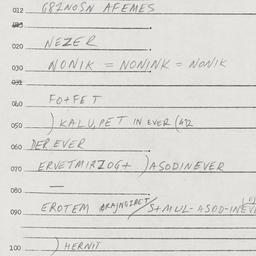 012 G8ZNOSN AFEMES
013
020 NEZER
030 NONIK = NONINK = NONIK
031
040 FO+FET
050 )KALU,PET IN EVER (
060 PER EVER
070 ERVETMIRZOG+ )ASODINEVER
080 —
090 EROTEM /S+MUL-ASOD-INEVE
100 )HERNIT